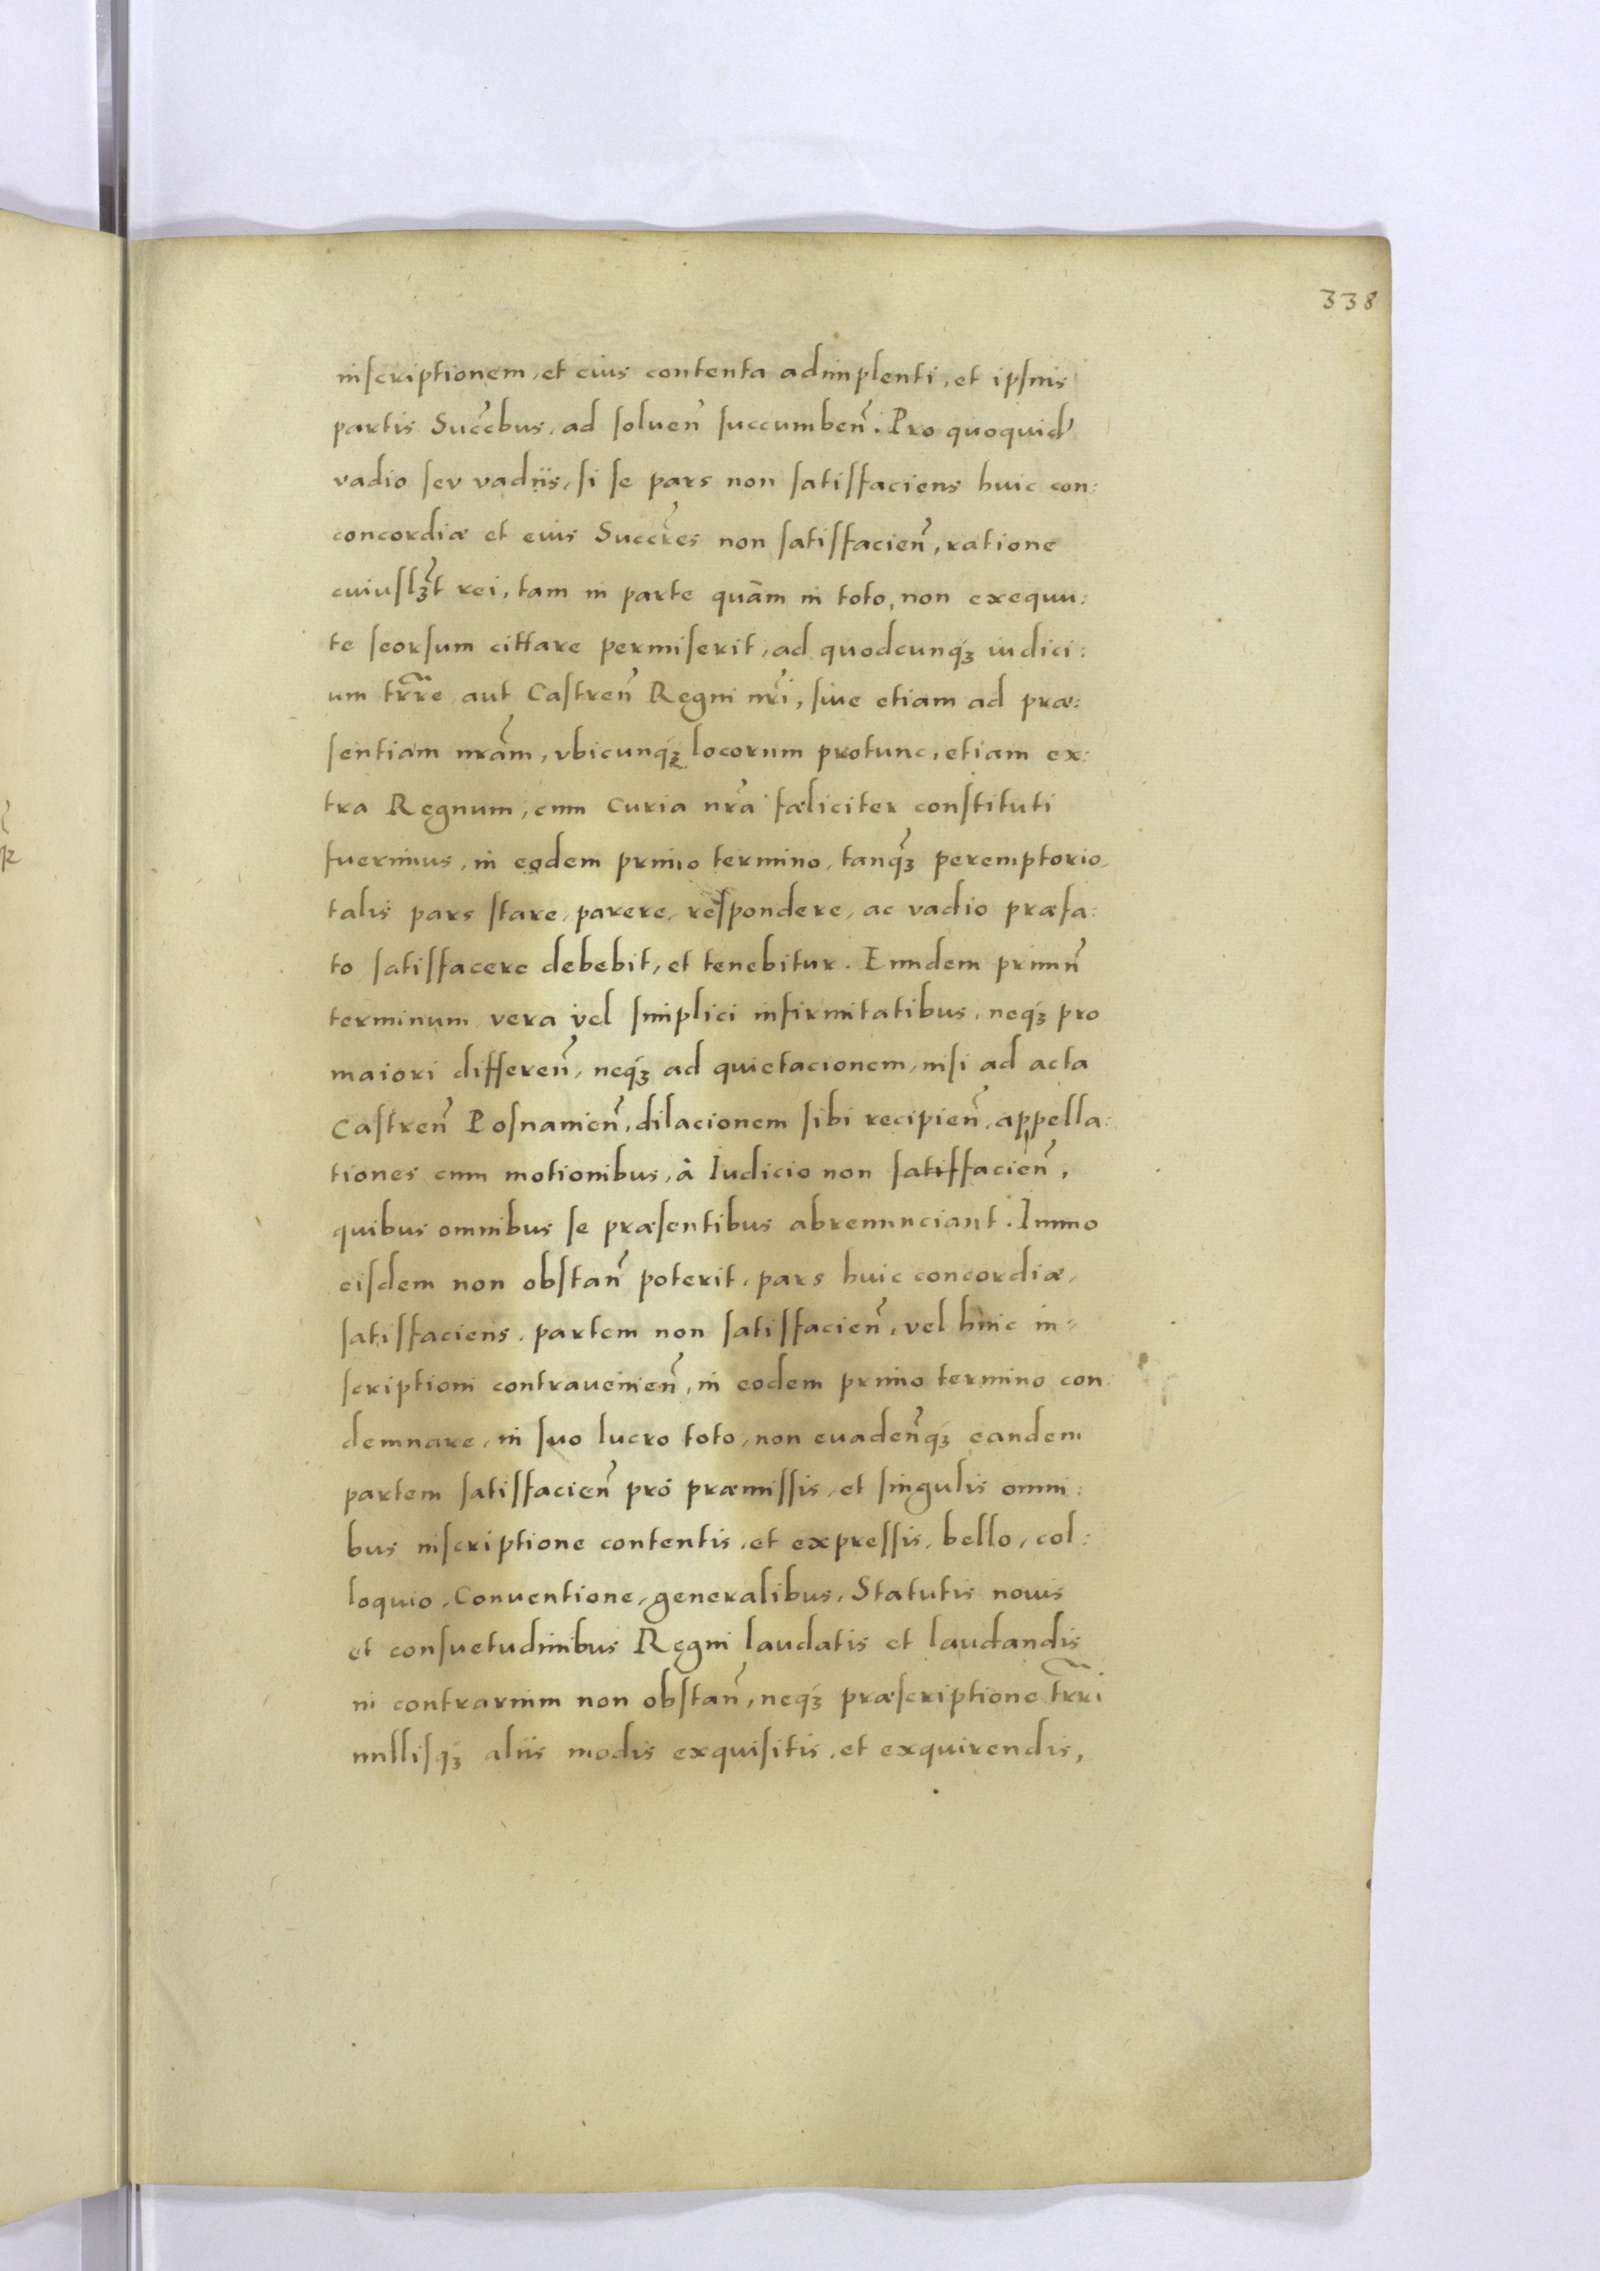 338
inscriptionem, et eius contenta adimplenti, et ipsius
partis Succ̃bus, ad soluen̄ succumben̄. Pro quoquid
vadio seu vadiis, si se pars non satisfaciens huic con:
concordiæ et eius Succr̃es non satisfacien̄, ratione
cuiuslꝫt rei, tam in parte quàm in toto, non exequu:
te seorsum cittare permiserit, ad quodcunqꝫ iudici:
um trr̃re aut Castren̄ Regni nr̃i, siue etiam ad præ:
sentiam nr̃am, vbicunqꝫ locorum protunc, etiam ex:
tra Regnum, cum Curia nr̃a fæliciter constituti
fuerimus, in eodem primo termino, tanqꝫ peremptorio,
talis pars stare, parere, respondere, ac vadio præfa:
to satisfacere debebit, et tenebitur. Eundem primũ
terminum vera vel simplici infirmitatibus, neqꝫ pro
maiori differen̄, neqꝫ ad quietacionem, nisi ad acta
Castren̄ Posnanien̄, dilacionem sibi recipien̄, appella:
tiones cum motionibus, à Iudicio non satisfacien̄,
quibus omnibus se præsentibus abrenunciant. Immo
eisdem non obstan̄ poterit, pars huic concordiæ,
satisfaciens, partem non satisfacien̄, vel huic in=
scriptioni contrauenien̄, in eodem primo termino con
demnare, in suo lucro toto, non euaden̄qꝫ eandem
partem satisfacien̄ pro præmissis, et singulis omni:
bus inscriptione contentis, et expressis, bello, col:
loquio, Conuentione, generalibus, Statutis nouis
et consuetudinibus Regni laudatis et laudandis
in contrarium non obstan̄, neqꝫ præscriptione trr̃ri
nullisqꝫ aliis modis exquisitis, et exquirendis,